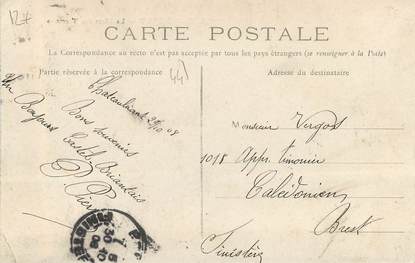 12f
CARTE POSTALE
La Correspondance au recto n'est pas acceptée par tous les pays étrangers (se renseigner à la Poste)
Partie réservée à la correspondance
Adresse du destinataire
44
Chateaubriant
Un Bonjour
Bons Souvenirs
Castel Briantais
Monsieur Vergos
1018 App. timonier
Calédonien
Brest
Finistère
FINISTERE
30